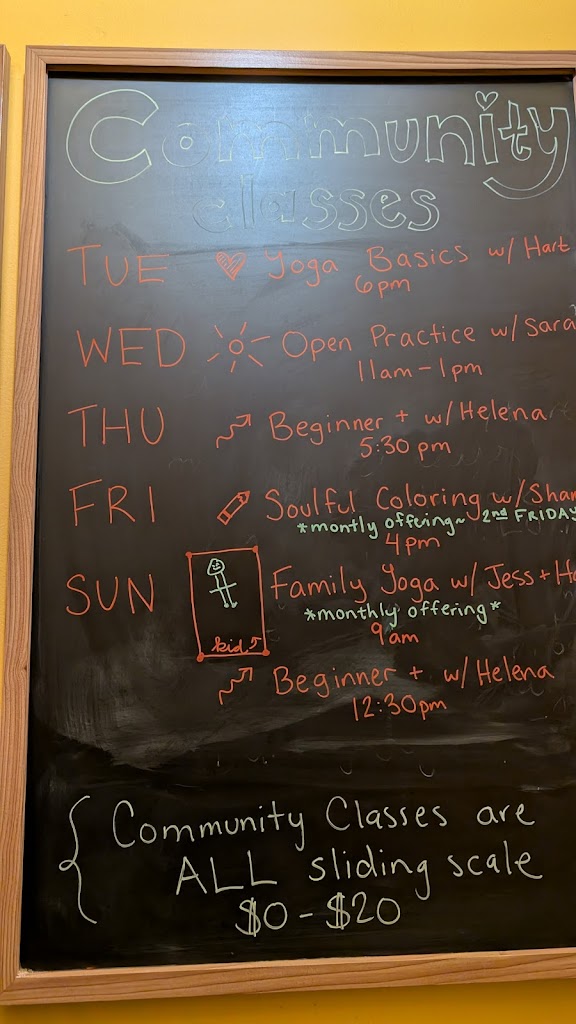 Community
classes
TUE Yoga Basics w/ Hart
6pm
WED Open Practice w/ Sara
11am - 1pm
THU Beginner + w/ Helena
5:30 pm
FRI Soulful Coloring w/ Shan
*montly offering~ 2nd FRIDAY
4pm
SUN Family Yoga w/ Jess +
*monthly offering*
kids
9am
Beginner + w/ Helena
12:30pm
Community Classes are
ALL sliding scale
$0 - $20